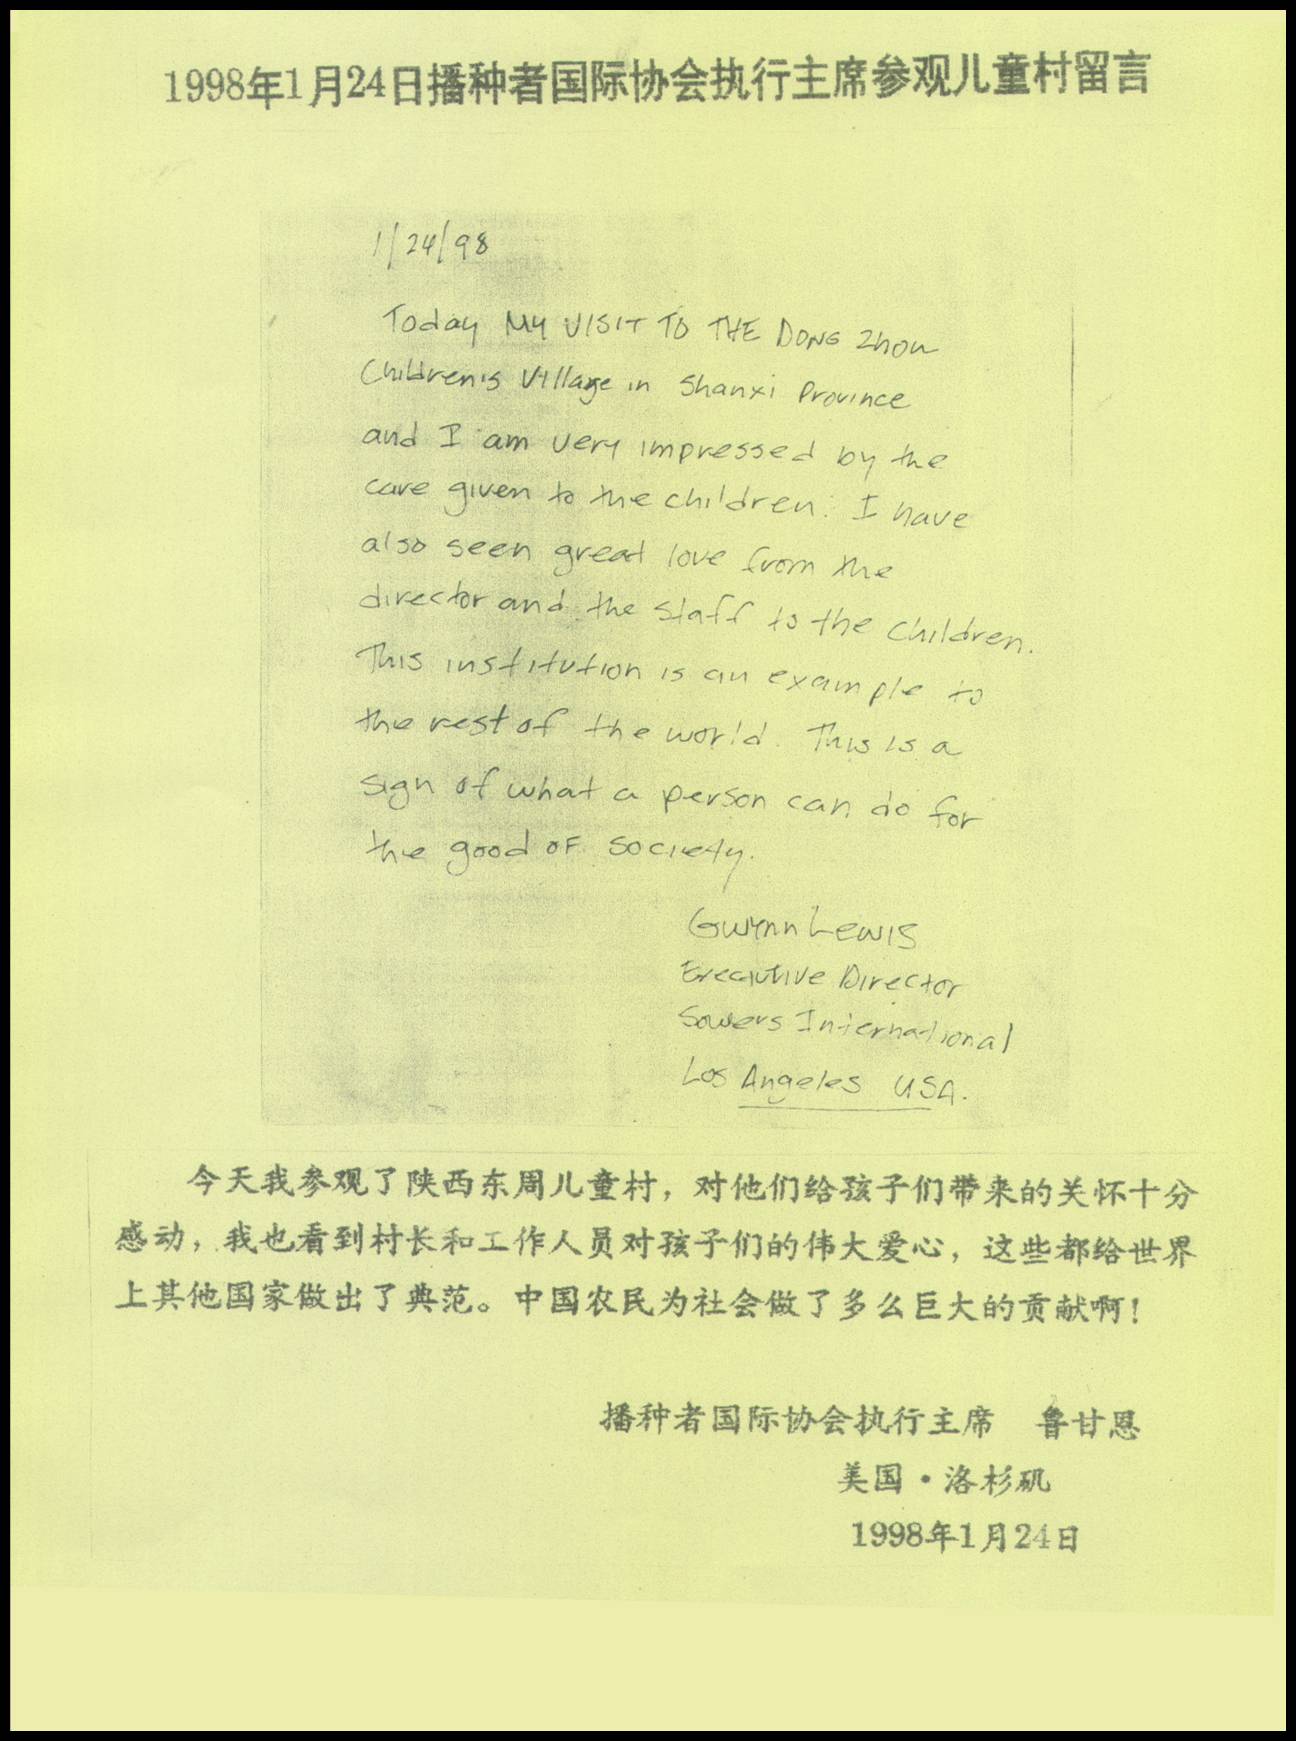 1998年1月24日播种者国际协会执行主席参观儿童村留言
1/24/98
Today MY VISIT TO THE DONG Zhou
Children's Village in Shanxi Province
and I am very impressed by the
care given to the children. I have
also seen great love from the
director and the staff to the children.
This institution is an example to
the rest of the world. This is a
sign of what a person can do for
the good OF society.
Gwynn Lewis
Executive Director
Sowers International
Los Angeles USA.
今天我参观了陕西东周儿童村，对他们给孩子们带来的关怀十分
感动，我也看到村长和工作人员对孩子们的伟大爱心，这些都给世界
上其他国家做出了典范。中国农民为社会做了多么巨大的贡献啊！
播种者国际协会执行主席 鲁甘恩
美国·洛杉矶
1998年1月24日